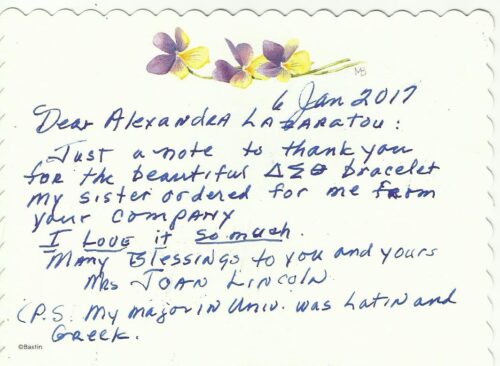 MB
6 Jan 2017
Dear Alexandra Lazaratou:
Just a note to thank you
for the beautiful ΔΣΘ bracelet
my sister ordered for me from
your company
I Love it so much.
Many Blessings to you and yours
Mrs Joan Lincoln
(P.S. My major in Univ. was Latin and
Greek.
©Bastin.